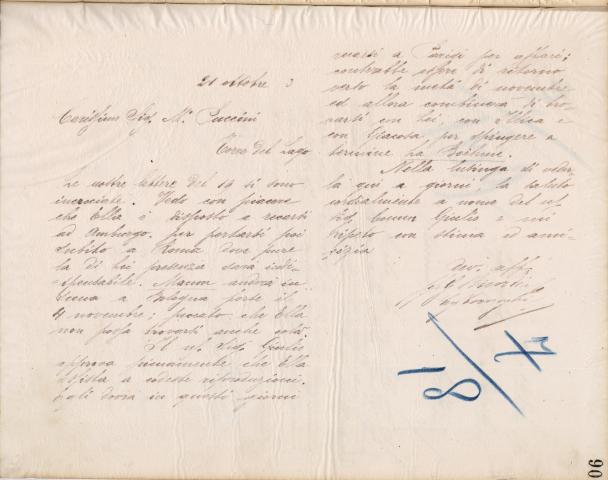 21 ottobre 3
Carissimo Sig. M. Puccini
Torre del Lago
Le nostre lettere del 19 si sono
incrociate. Vedo con piacere
che Ella è disposto a recarsi
ad Amburgo, per portarsi poi
subito a Roma dove pure
la di Lei presenza sarà indi-
spensabile. Manon andrà in
scena a Bologna verso il
4 novembre; peccato che Ella
non possa trovarsi anche colà.
Il n/. Sig. Giulio
approva pienamente che Ella
assista a codeste riproduzioni.
Egli dovrà in questi giorni
recarsi a Parigi per affari;
conterebbe essere di ritorno
verso la metà di novembre
ed allora combinerà di tro-
varsi con Lei, con Illica e
con Giacosa per spingere a
termine la Bohème.
Nella lusinga di veder-
la qui a giorni, la saluto
cordialmente a nome del n/.
Sig. Comm. Giulio e mi
ripeto con stima ed ami-
cizia
dev. aff.
7/18
90